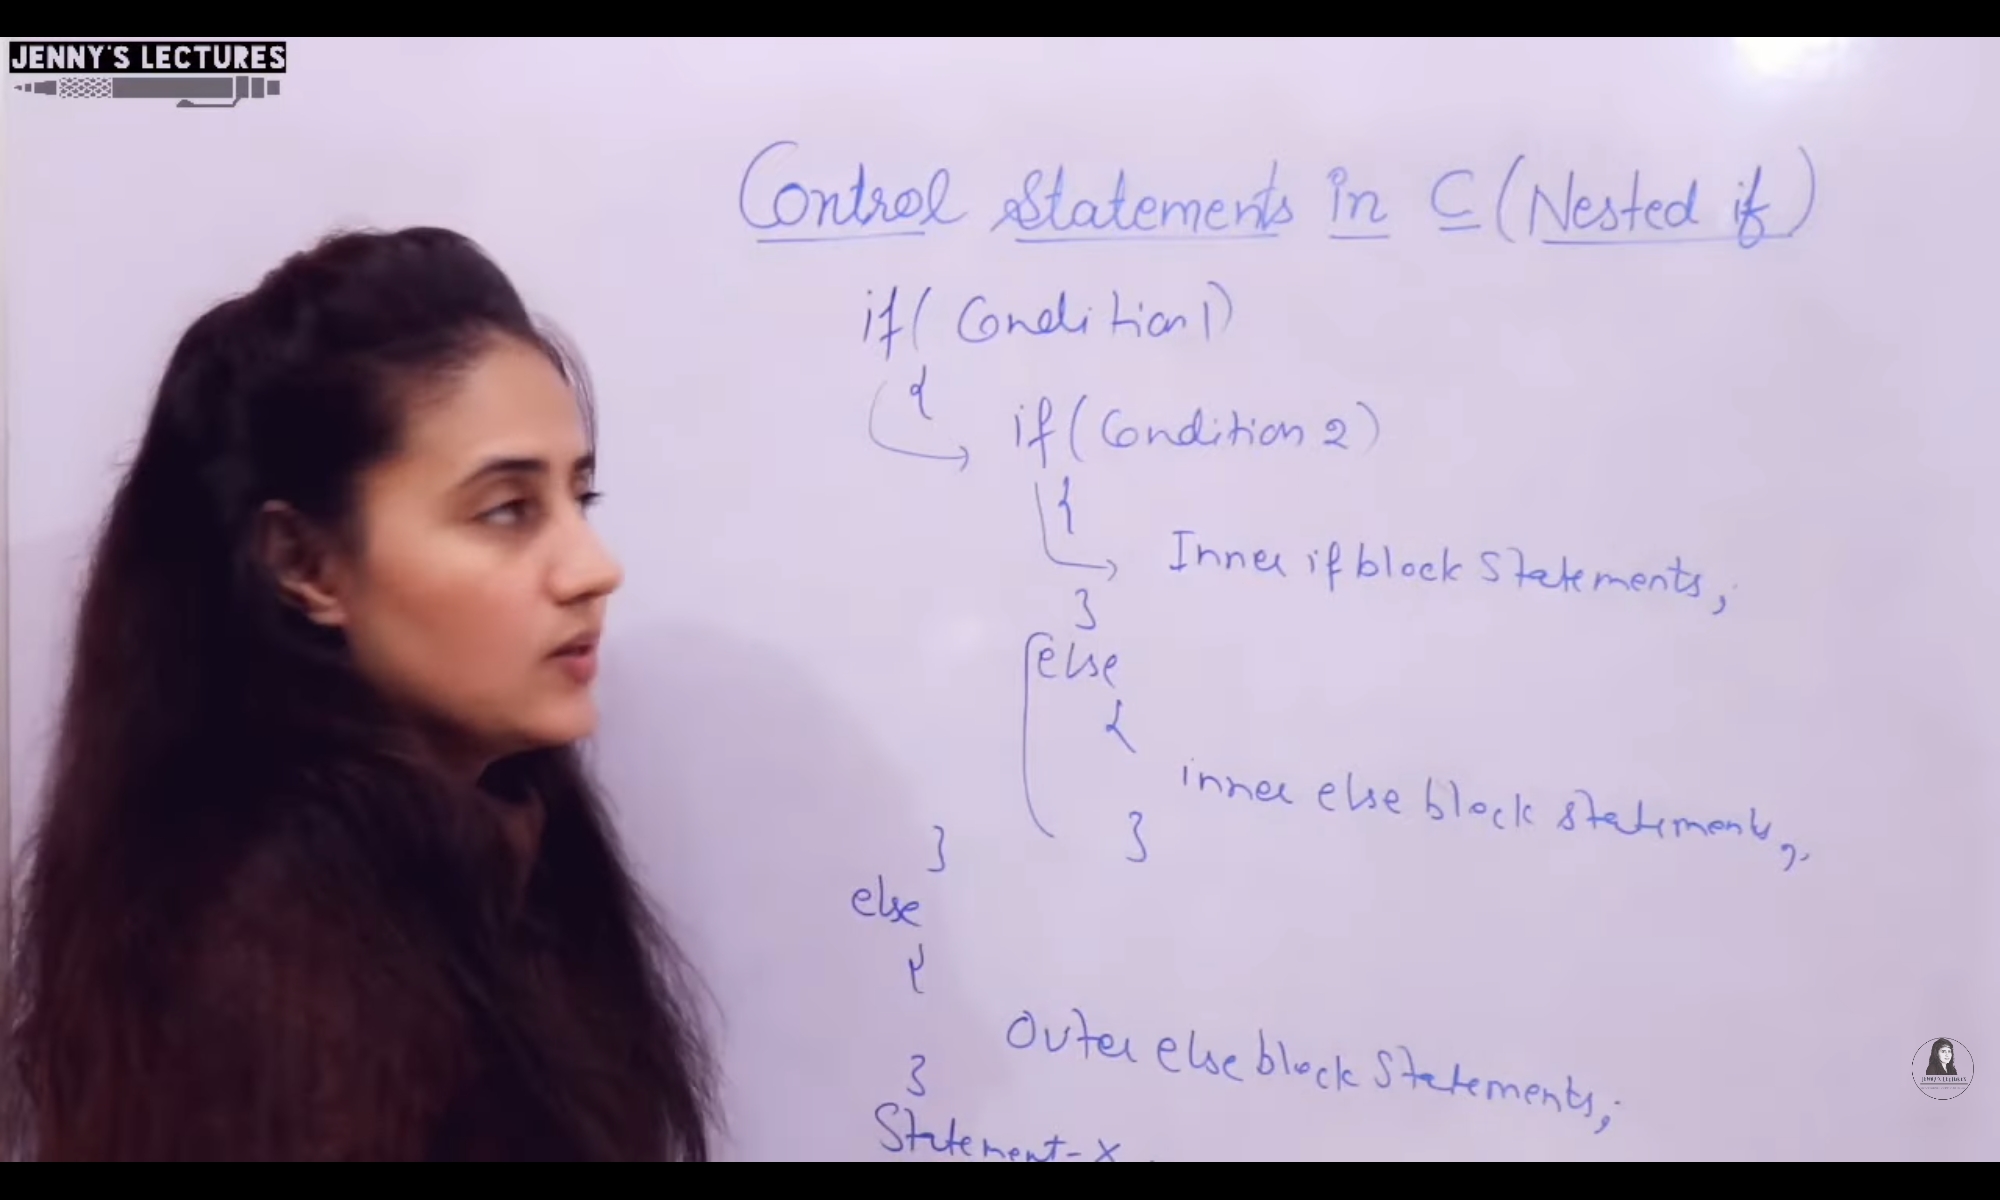 JENNY'S LECTURES
Control Statements in C (Nested if)
if( Condition 1)
{
if( Condition 2)
{
Inner if block Statements;
}
else
{
inner else block statements;
}
}
else
{
Outer else block Statements;
}
Statement-X
JENNY'S LECTURES